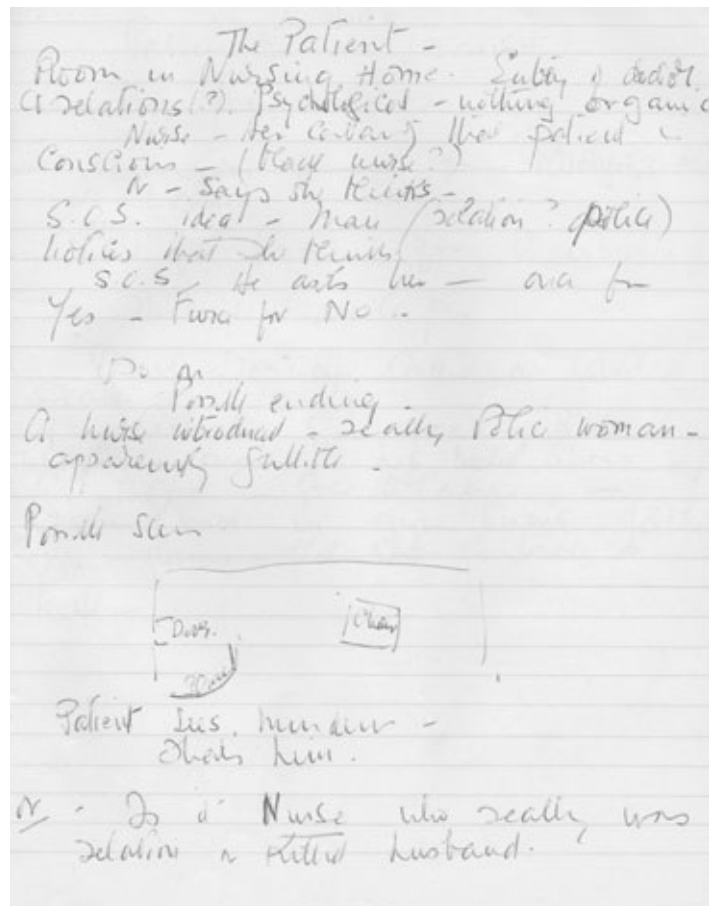 The Patient -
Room in Nursing Home. Entry of doctor.
A relations (?). Psychological - nothing organic
Nurse - Her certainty that patient is
Conscious - (black nurse?)
N - Says she thinks -
S.C.S. idea - Man (relation? police)
notices that she thinks
S.C.S. He asks her - once for
Yes - Twice for No -
Possible ending.
A nurse introduced - really Police woman -
apparently gullible -
Possible scene
Door.
Chair
Patient sees murderer -
him.
N - Is it Nurse who really was
relation or killed husband.